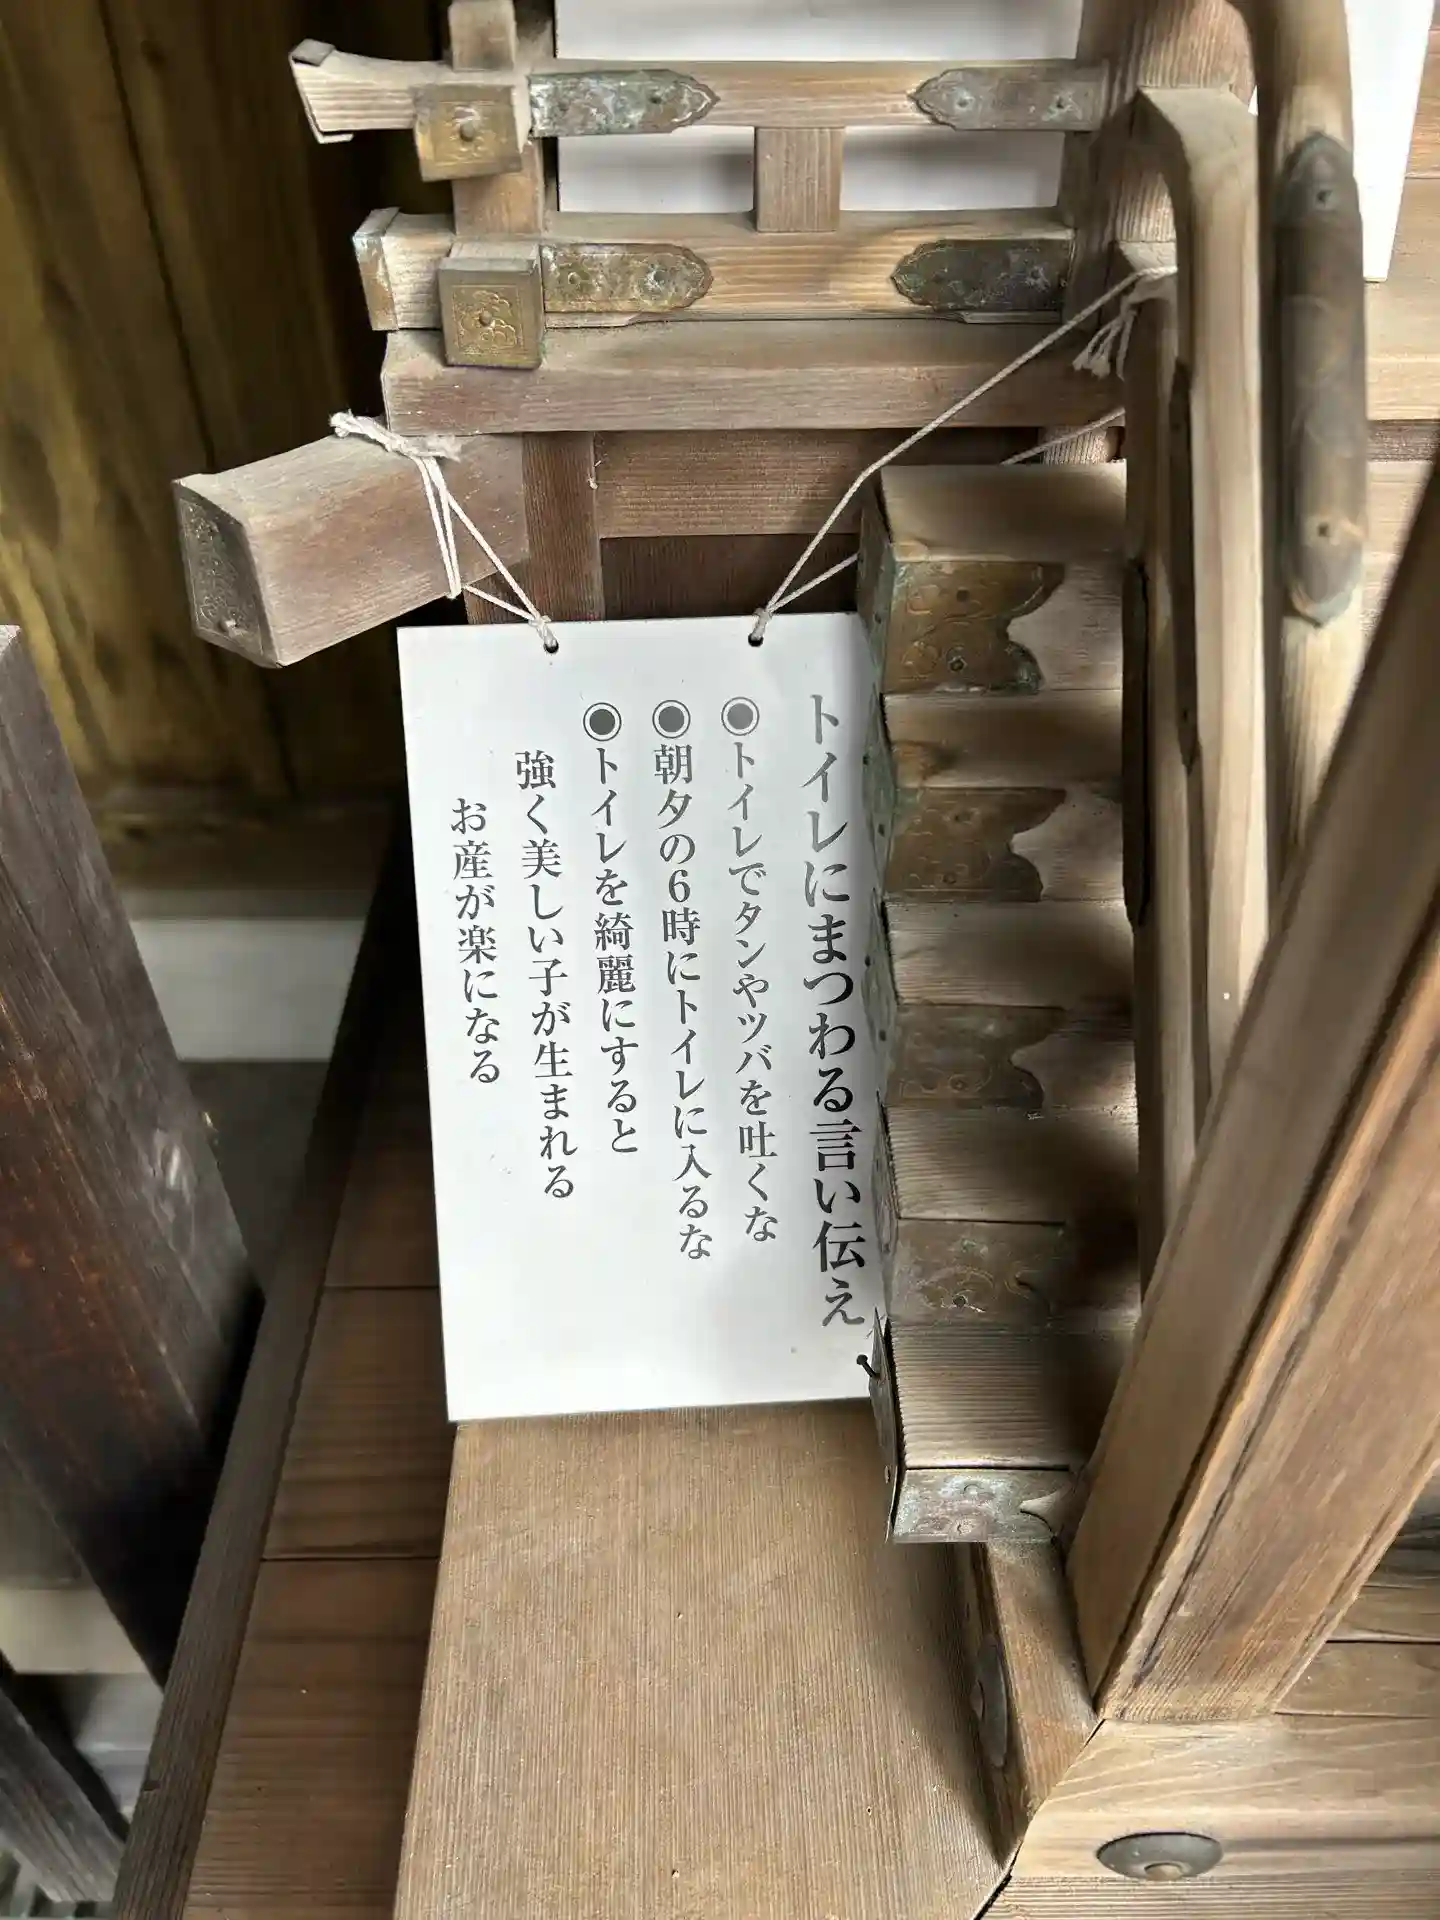 トイレにまつわる言い伝え
◉トイレでタンやツバを吐くな
◉朝夕の6時にトイレに入るな
◉トイレを綺麗にすると
強く美しい子が生まれる
お産が楽になる